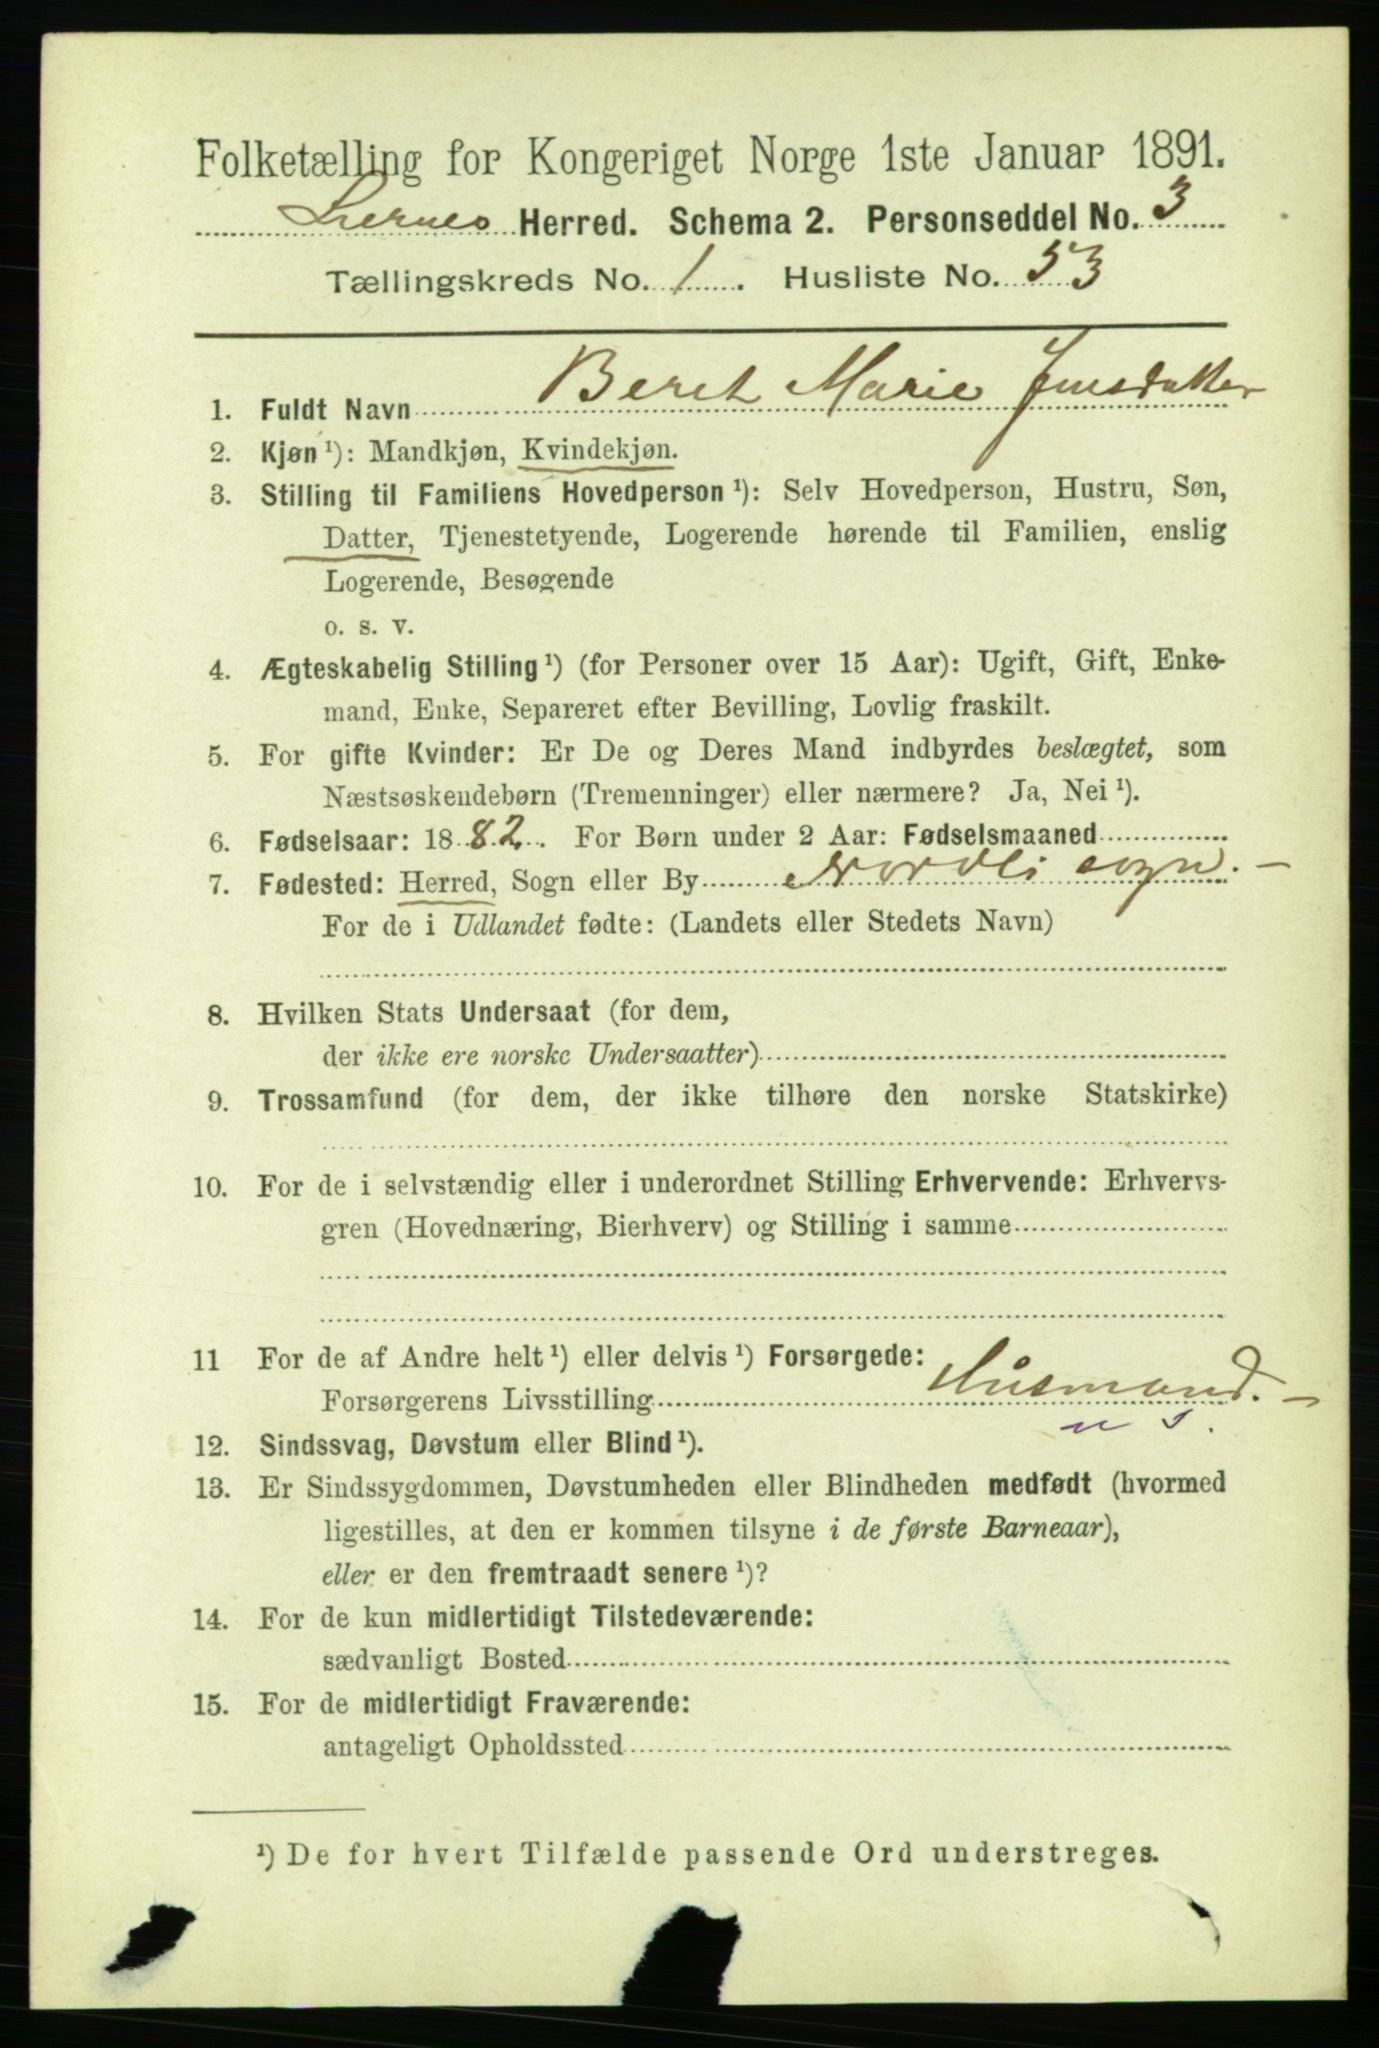 Folketælling for Kongeriget Norge 1ste Januar 1891.
Liernes Herred. Schema 2. Personseddel No. 3
Tællingskreds No. 1. Husliste No. 53
1. Fuldt Navn Beret Marie Jensdatter
2. Kjøn ¹): Mandkjøn, Kvindekjøn.
3. Stilling til Familiens Hovedperson ¹): Selv Hovedperson, Hustru, Søn,
Datter, Tjenestetyende, Logerende hørende til Familien, enslig
Logerende, Besøgende
o. s. v.
4. Ægteskabelig Stilling ¹) (for Personer over 15 Aar): Ugift, Gift, Enke-
mand, Enke, Separeret efter Bevilling, Lovlig fraskilt.
5. For gifte Kvinder: Er De og Deres Mand indbyrdes beslægtet, som
Næstsøskendebørn (Tremenninger) eller nærmere? Ja, Nei ¹).
6. Fødselsaar: 1882. For Børn under 2 Aar: Fødselsmaaned
7. Fødested: Herred, Sogn eller By Nordli sogn. —
For de i Udlandet fødte: (Landets eller Stedets Navn)
8. Hvilken Stats Undersaat (for dem,
der ikke ere norske Undersaatter)
9. Trossamfund (for dem, der ikke tilhøre den norske Statskirke)
10. For de i selvstændig eller i underordnet Stilling Erhvervende: Erhvervs-
gren (Hovednæring, Bierhverv) og Stilling i samme
11 For de af Andre helt ¹) eller delvis ¹) Forsørgede:
Forsørgerens Livsstilling Husmand. —
12. Sindssvag, Døvstum eller Blind ¹).
13. Er Sindssygdommen, Døvstumheden eller Blindheden medfødt (hvormed
ligestilles, at den er kommen tilsyne i de første Barneaar),
eller er den fremtraadt senere ¹)?
14. For de kun midlertidigt Tilstedeværende:
sædvanligt Bosted
15. For de midlertidigt Fraværende:
antageligt Opholdssted
¹) De for hvert Tilfælde passende Ord understreges.